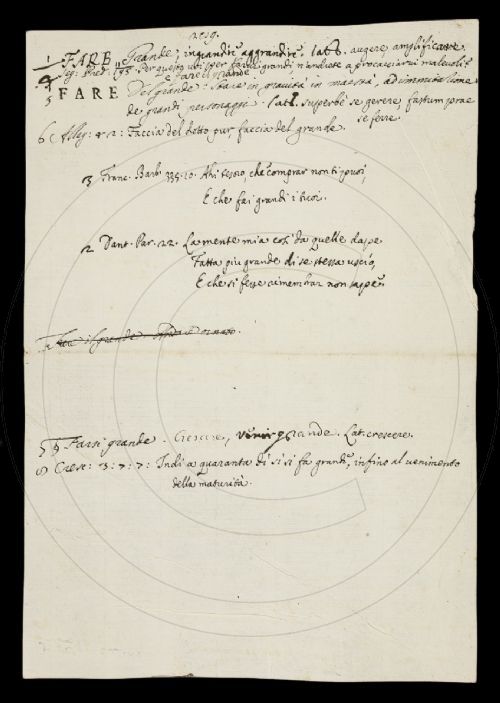 1 FARE Grande, ingrandire aggrandire. Lat. augere, amplificare.
Seg: Pred: Per questo usi per farsi grandi non
4 e Fare il grande
5 FARE Del grande: stare in gravità in maestà, ad immitazione
de' grandi personaggi. Lat. superbè se gerere, fastum prae
se ferre.
6 Alleg: 82: Faccia del dotto pur faccia del grande.
3 Franc. Barb. 335.20. Ahi tesoro, che comprar non ti puoi,
E che fai grandi i tuoi.
2 Dant. Par. 22. La mente mia così da quelle dape
Fatta più grande di se stessa uscio,
E che si fesse rimembrar non sape.
il grande
5 Farsi grande. Crescere, venir grande. Lat. crescere.
8 Cresc: 3:7:7: Indi a quaranta dì si si fa grande, infino al venimento
della maturità.